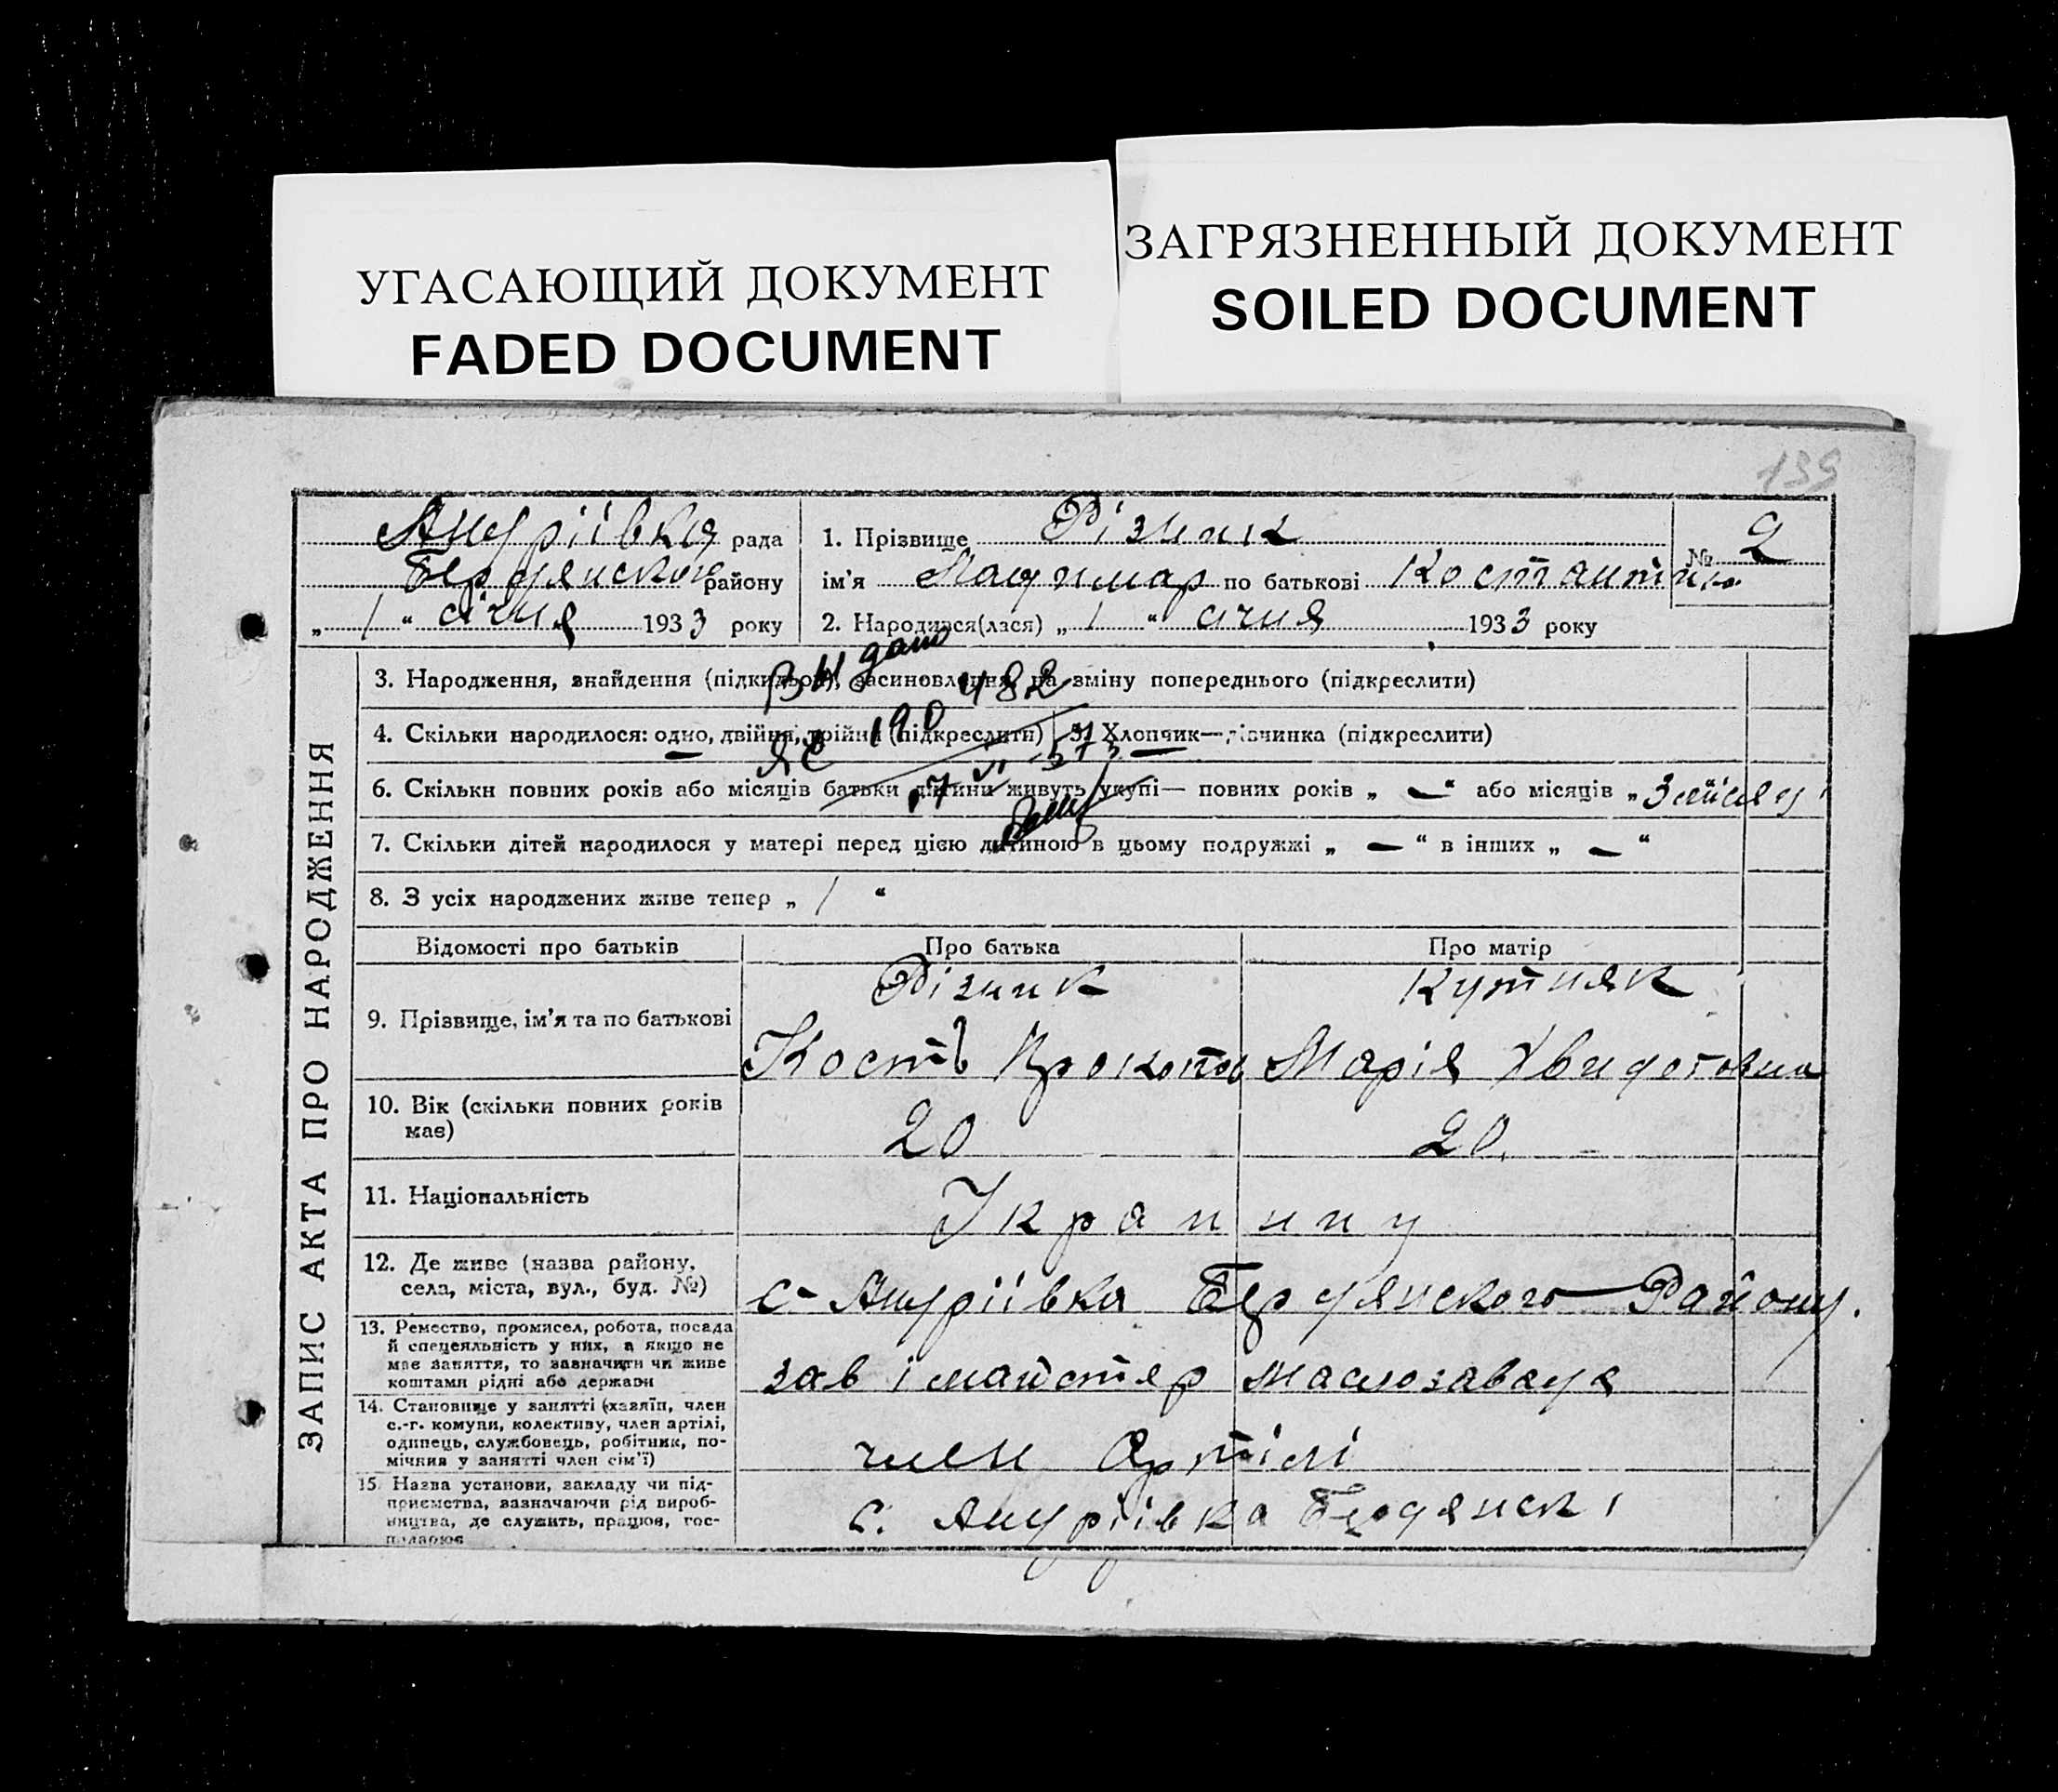 УГАСАЮЩИЙ ДОКУМЕНТ
FADED DOCUMENT
ЗАГРЯЗНЕННЫЙ ДОКУМЕНТ
SOILED DOCUMENT
139
ЗАПИС АКТА ПРО НАРОДЖЕННЯ
Андріівка рада
Бердянского району
„ 1 “ січня 1933 року
1. Прізвище Різник
ім'я по батькові Костантин
2. Народився(лася) „ 1 “ січня 1933 року
№ 2
3. Народження, знайдення (підкидьок), засиновлення, на зміну попереднього (підкреслити)
Видано
ЯС 190482
4. Скільки народилося: одно, двійня, трійня (підкреслити) 5. Хлопчик—дівчинка (підкреслити)
6. Скільки повних років або місяців батьки дитини живуть укупі— повних років „ — “ або місяців „
7. Скільки дітей народилося у матері перед цією дитиною в цьому подружжі „ — “ в інших „ — “
8. З усіх народжених живе тепер „ 1 “
Відомості про батьків Про батька Про матір
9. Прізвище, ім'я та по батькові
Різник Кутняк
Кость Прокопов Марія Хведотовна
10. Вік (скільки повних років має)
20 20.
11. Національність
Украинцу
12. Де живе (назва району, села, міста, вул., буд. №)
с- Андріівка Бердянского Району.
13. Ремество, промисел, робота, посада
й спецеяльність у них, а якщо не
має заняття, то зазначити чи живе
коштами рідні або держави
зав і майстер маслозавада
14. Становище у занятті (хазяїн, член
с.-г. комуни, колективу, член артілі,
одинець, службовець, робітник, по-
мічник у занятті член сім'ї)
член Артілі
15. Назва установи, закладу чи під-
приємства, зазначаючи рід вироб-
ництва, де служить, працює, гос-
подарює
с. Андріівка Бердянскі